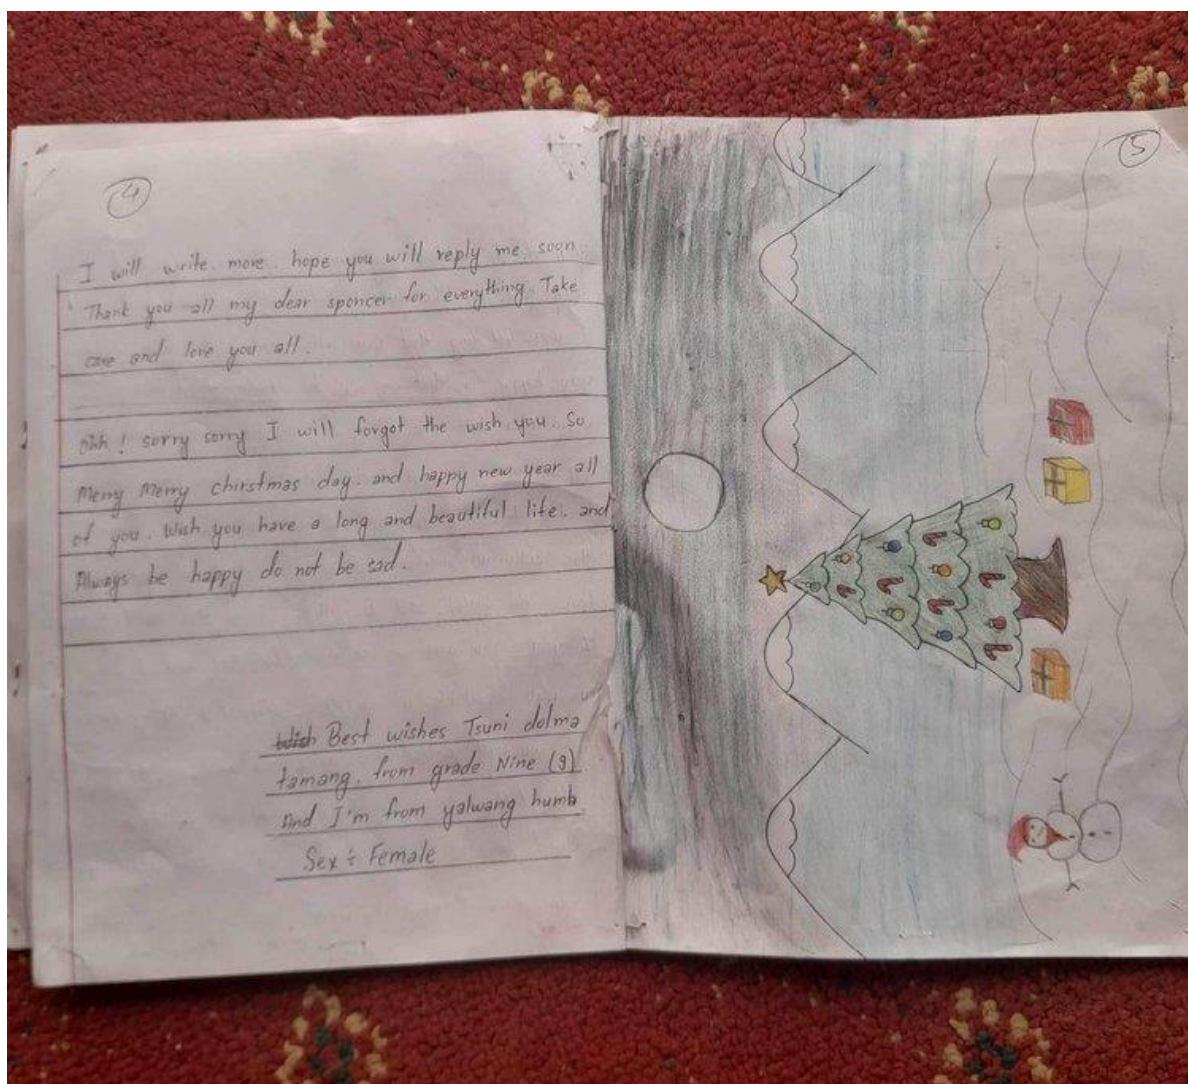 4
I will write more. hope you will reply me soon.
Thank you all my dear sponcer for everything. Take
care and love you all.
ohh! sorry sorry I will forgot the wish you. So
Merry Merry chirstmas day. and happy new year all
of you. Wish you have a long and beautiful life. and
Always be happy do not be sad.
Best wishes Tsuni dolma
tamang. from grade Nine (9)
And I'm from yalwang humla
Sex ÷ Female
5